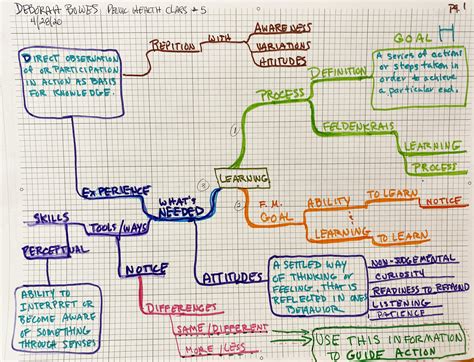 DEBORAH BOWES PELVIC HEALTH CLASS #5
4/28/20
Pg. 1
DIRECT OBSERVATION
OF OR PARTICIPATION
IN ACTION AS BASIS
FOR KNOWLEDGE.
REPITION WITH
AWARENESS
VARIATIONS
ATTITUDES
GOAL
A series of actions
or steps taken in
order to achieve
a particular end.
DEFINITION
PROCESS
FELDENKRAIS
LEARNING
PROCESS
①
LEARNING
②
③
F.M.
GOAL
ABILITY TO LEARN NOTICE
LEARNING TO LEARN
WHAT'S
NEEDED
EXPERIENCE
TOOLS/WAYS
SKILLS
PERCEPTUAL
ABILITY TO
INTERPRET OR
BECOME AWARE
OF SOMETHING
THROUGH SENSES
NOTICE
DIFFERENCES
SAME/DIFFERENT
MORE/LESS
ATTITUDES
A SETTLED WAY
OF THINKING OR
FEELING, THAT IS
REFLECTED IN ONES
BEHAVIOR.
NON-JUDGEMENTAL
CURIOSITY
READINESS TO RESPOND
LISTENING
PATIENCE
USE THIS INFORMATION
TO GUIDE ACTION